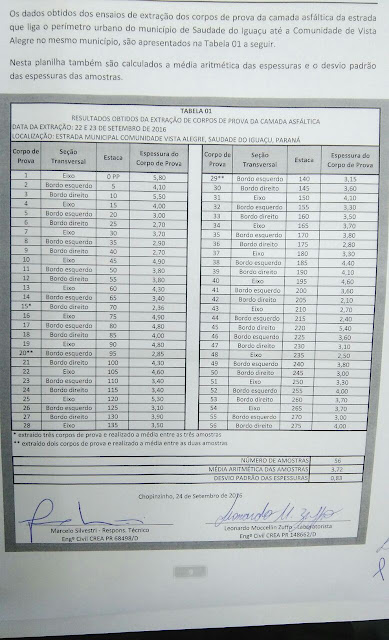 Os dados obtidos dos ensaios de extração dos corpos de prova da camada asfáltica da estrada
que liga o perímetro urbano do município de Saudade do Iguaçu até a Comunidade de Vista
Alegre no mesmo município, são apresentados na Tabela 01 a seguir.
Nesta planilha também são calculados a média aritmética das espessuras e o desvio padrão
das espessuras das amostras.
TABELA 01
RESULTADOS OBTIDOS DA EXTRAÇÃO DE CORPOS DE PROVA DA CAMADA ASFÁLTICA
DATA DA EXTRAÇÃO: 22 E 23 DE SETEMBRO DE 2016
LOCALIZAÇÃO: ESTRADA MUNICIPAL COMUNIDADE VISTA ALEGRE, SAUDADE DO IGUAÇU, PARANÁ
Corpo de Prova Seção Transversal Estaca Espessura do Corpo de Prova Corpo de Prova Seção Transversal Estaca Espessura do Corpo de Prova
1 Eixo 0 PP 5,80 29** Bordo esquerdo 140 3,15
2 Bordo esquerdo 5 4,10 30 Bordo direito 145 3,60
3 Bordo direito 10 5,50 31 Eixo 150 4,10
4 Eixo 15 4,00 32 Bordo esquerdo 155 3,30
5 Bordo esquerdo 20 3,00 33 Bordo direito 160 3,50
6 Bordo direito 25 2,70 34 Eixo 165 3,70
7 Eixo 30 3,70 35 Bordo esquerdo 170 3,80
8 Bordo esquerdo 35 2,90 36 Bordo direito 175 2,80
9 Bordo direito 40 2,70 37 Eixo 180 3,30
10 Eixo 45 4,90 38 Bordo esquerdo 185 4,40
11 Bordo esquerdo 50 3,80 39 Bordo direito 190 4,10
12 Bordo direito 55 3,80 40 Eixo 195 4,60
13 Eixo 60 4,30 41 Bordo esquerdo 200 3,60
14 Bordo esquerdo 65 3,40 42 Bordo direito 205 2,10
15* Bordo direito 70 2,36 43 Eixo 210 2,70
16 Eixo 75 4,50 44 Bordo esquerdo 215 2,40
17 Bordo esquerdo 80 4,80 45 Bordo direito 220 5,40
18 Bordo direito 85 4,00 46 Bordo esquerdo 225 3,60
19 Eixo 90 4,80 47 Bordo direito 230 3,10
20** Bordo esquerdo 95 2,85 48 Eixo 235 2,50
21 Bordo direito 100 4,30 49 Bordo esquerdo 240 3,80
22 Eixo 105 4,60 50 Bordo direito 245 3,00
23 Bordo esquerdo 110 3,40 51 Eixo 250 3,30
24 Bordo direito 115 3,40 52 Bordo esquerdo 255 4,00
25 Eixo 120 5,30 53 Bordo direito 260 3,70
26 Bordo esquerdo 125 3,10 54 Eixo 265 3,70
27 Bordo direito 130 3,90 55 Bordo esquerdo 270 3,00
28 Eixo 135 3,50 56 Bordo direito 275 4,00
* extraído três corpos de prova e realizado a média entre as três amostras
** extraído dois corpos de prova e realizado a média entre as duas amostras
NÚMERO DE AMOSTRAS 56
MÉDIA ARITMÉTICA DAS AMOSTRAS 3,72
DESVIO PADRÃO DAS ESPESSURAS 0,83
Chopinzinho, 24 de Setembro de 2016
Leonardo M. Zuffo
Marcelo Silvestri - Respons. Técnico Leonardo Moccellin Zuffo - Laboratorista
Engº Civil CREA PR 68498/D Engº Civil CREA PR 148662/D